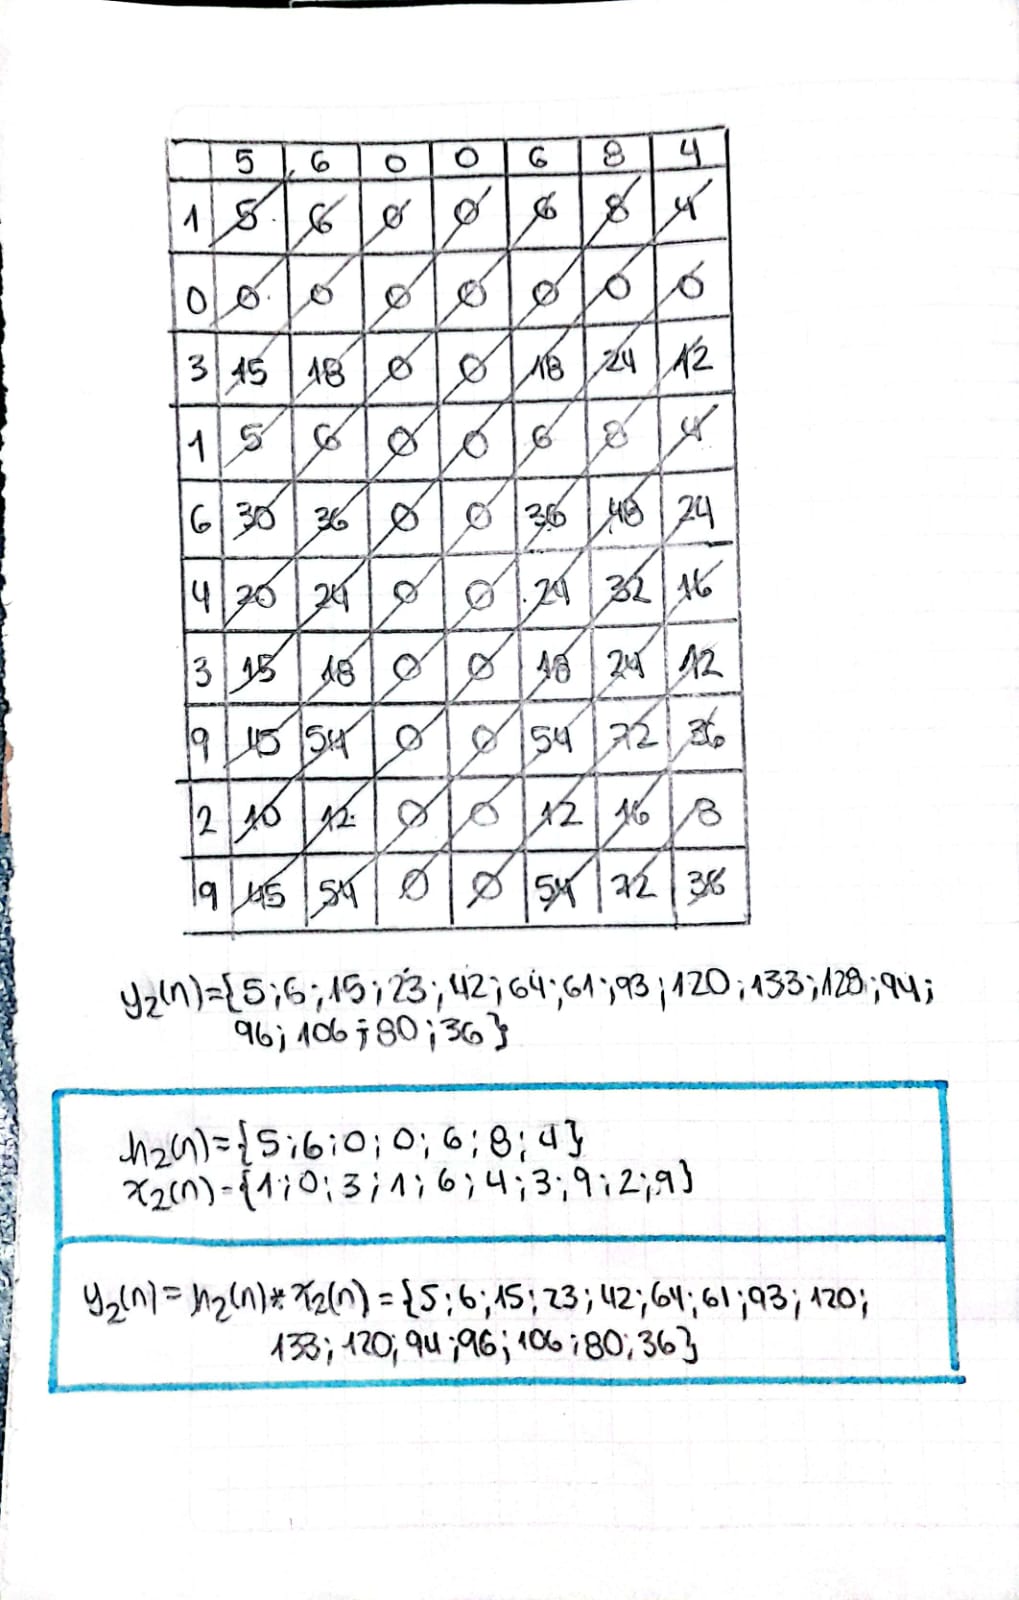 5 6 0 0 6 8 4
1 5 6 0 0 6 8 4
0 0 0 0 0 0 0 0
3 15 18 0 0 18 24 12
1 5 6 0 0 6 8 4
6 30 36 0 0 36 48 24
4 20 24 0 0 24 32 16
3 15 18 0 0 18 24 12
9 45 54 0 0 54 72 36
2 10 12 0 0 12 16 8
9 45 54 0 0 54 72 36
y₂(n)={5;6;15;23;42;64;61;93;120;133;128;94;
96;106;80;36}
h₂(n)={5;6;0;0;6;8;4}
x₂(n)={1;0;3;1;6;4;3;9;2;9}
y₂(n)=h₂(n)*x₂(n)={5;6;15;23;42;64;61;93;120;
133;120;94;96;106;80;36}